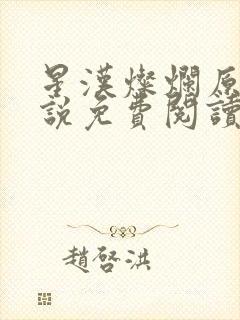 星漢燦爛原
說免費閱讀
趙啓洪